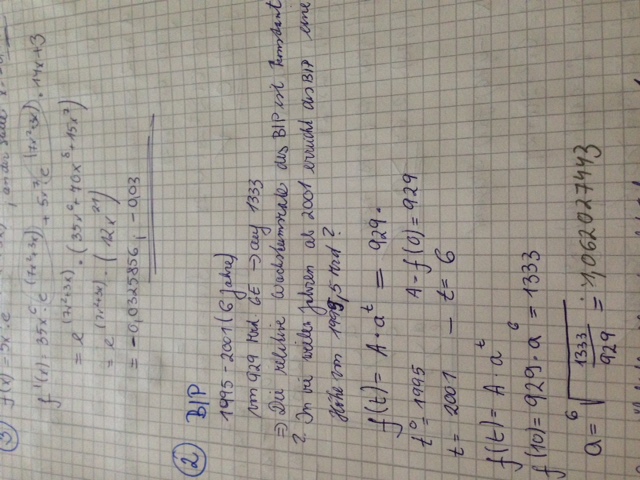 ③ f(x) = 5x · e
f'(x) = 35x⁶ · e^(7x²+3x) + 5x⁷ · e^(7x²+3x) · 14x+3
= e^(7x²+3x) · (35x⁶ + 70x⁸ + 15x⁷)
= e^(7x²+3x) · (12x²¹)
= -0,0325856 ; -0,03
② BIP
1995 - 2001 (6 Jahre)
von 929 Mrd. GE → auf 1333
⇒ Die relative Wachstumsrate des BIP ist konstant
? In wie vielen Jahren ab 2001 erreicht das BIP eine
Höhe von 1999,5 Mrd?
f(t) = A · aᵗ = 929 ·
t⁰ = 1995 A = f(0) = 929
t = 2001 – t = 6
f(t) = A · aᵗ
f(10) = 929 · a⁶ = 1333
a = ⁶√(1333/929) = 1,062027443